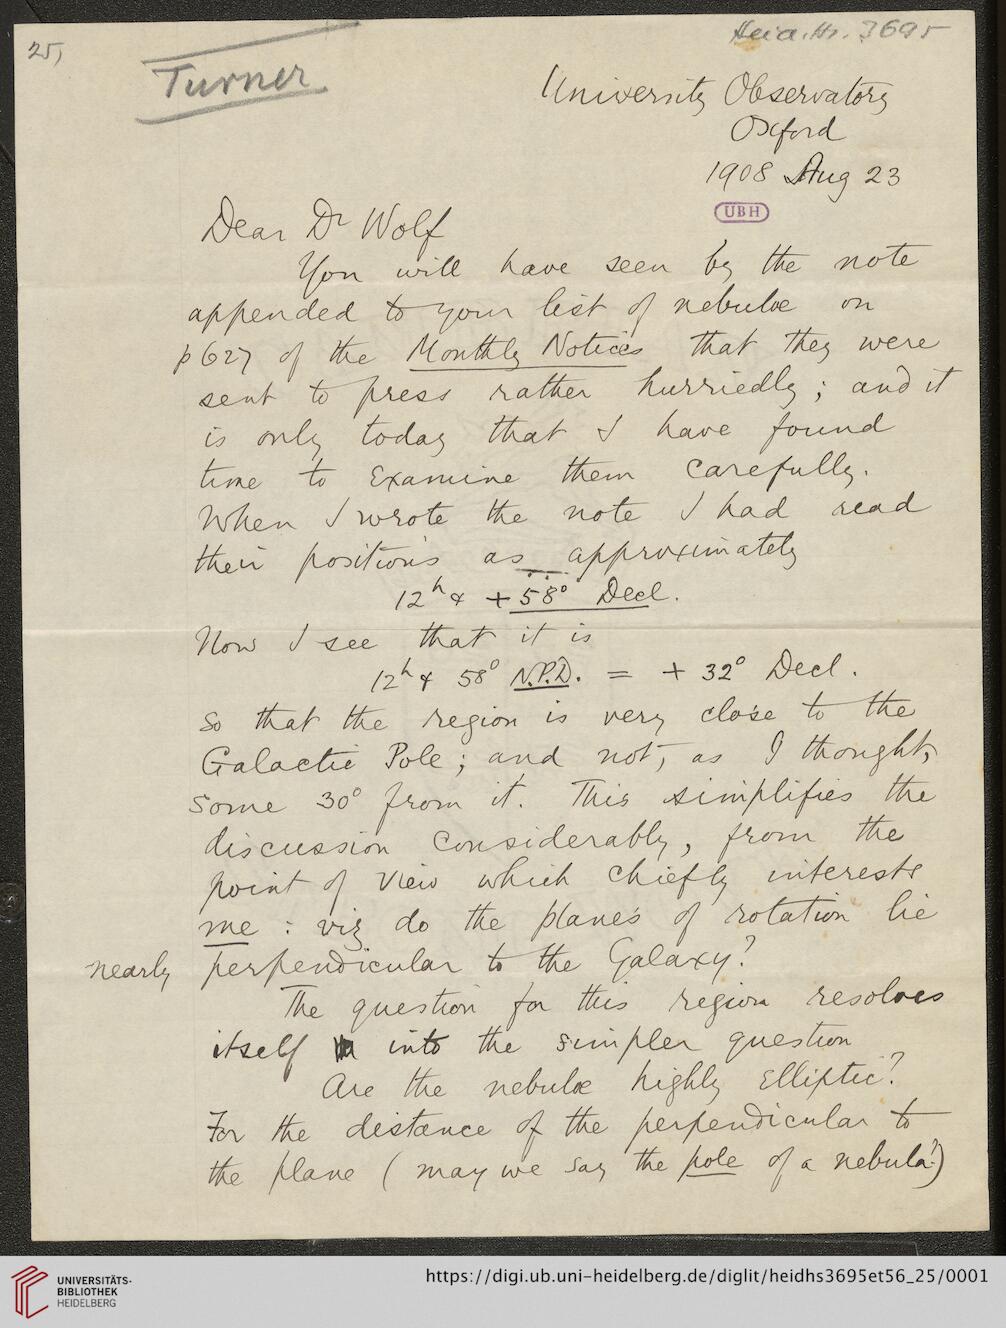 25,
Heid. Hs. 3695
Turner
University Observatory
Oxford
1908 Aug 23
UBH
Dear Dr Wolf
You will have seen by the note
appended to your list of nebulæ on
p 627 of the Monthly Notices that they were
sent to press rather hurriedly; and it
is only today that I have found
time to examine them carefully.
When I wrote the note I had read
their positions as approximately
12h & + 58° Decl.
Now I see that it is
12h & 58° N.P.D. = + 32° Decl.
so that the region is very close to the
Galactic Pole; and not, as I thought,
some 30° from it. This simplifies the
discussion considerably, from the
point of view which chiefly interests
me: viz do the planes of rotation lie
nearly perpendicular to the Galaxy?
The question for this region resolves
itself into the simpler question
Are the nebulæ highly elliptic?
For the distance of the perpendicular to
the plane (may we say the pole of a nebula?)
UNIVERSITÄTS-
BIBLIOTHEK
HEIDELBERG
https://digi.ub.uni-heidelberg.de/diglit/heidhs3695et56_25/0001